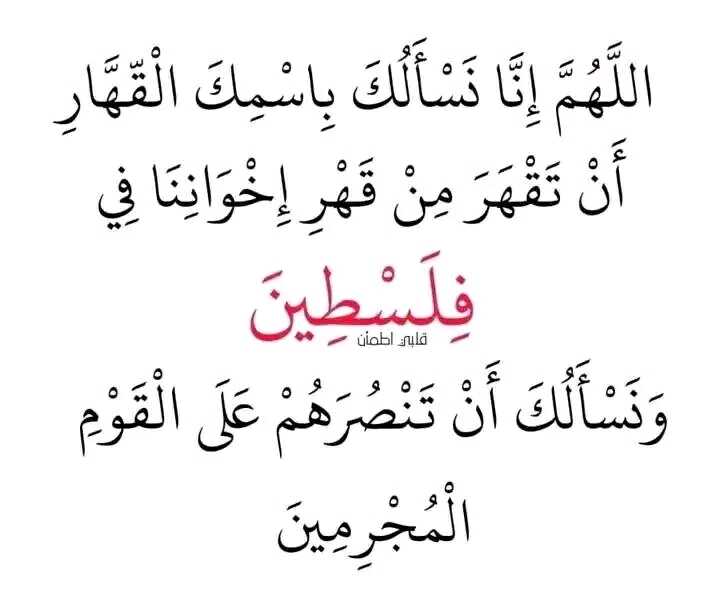 اللَّهُمَّ إِنَّا نَسْأَلُكَ بِاسْمِكَ الْقَهَّارِ
أَنْ تَقْهَرَ مِنْ قَهْرِ إِخْوَانِنَا فِي
فِلَسْطِينَ
قلبي اطمأن
وَنَسْأَلُكَ أَنْ تَنْصُرَهُمْ عَلَى الْقَوْمِ
الْمُجْرِمِينَ